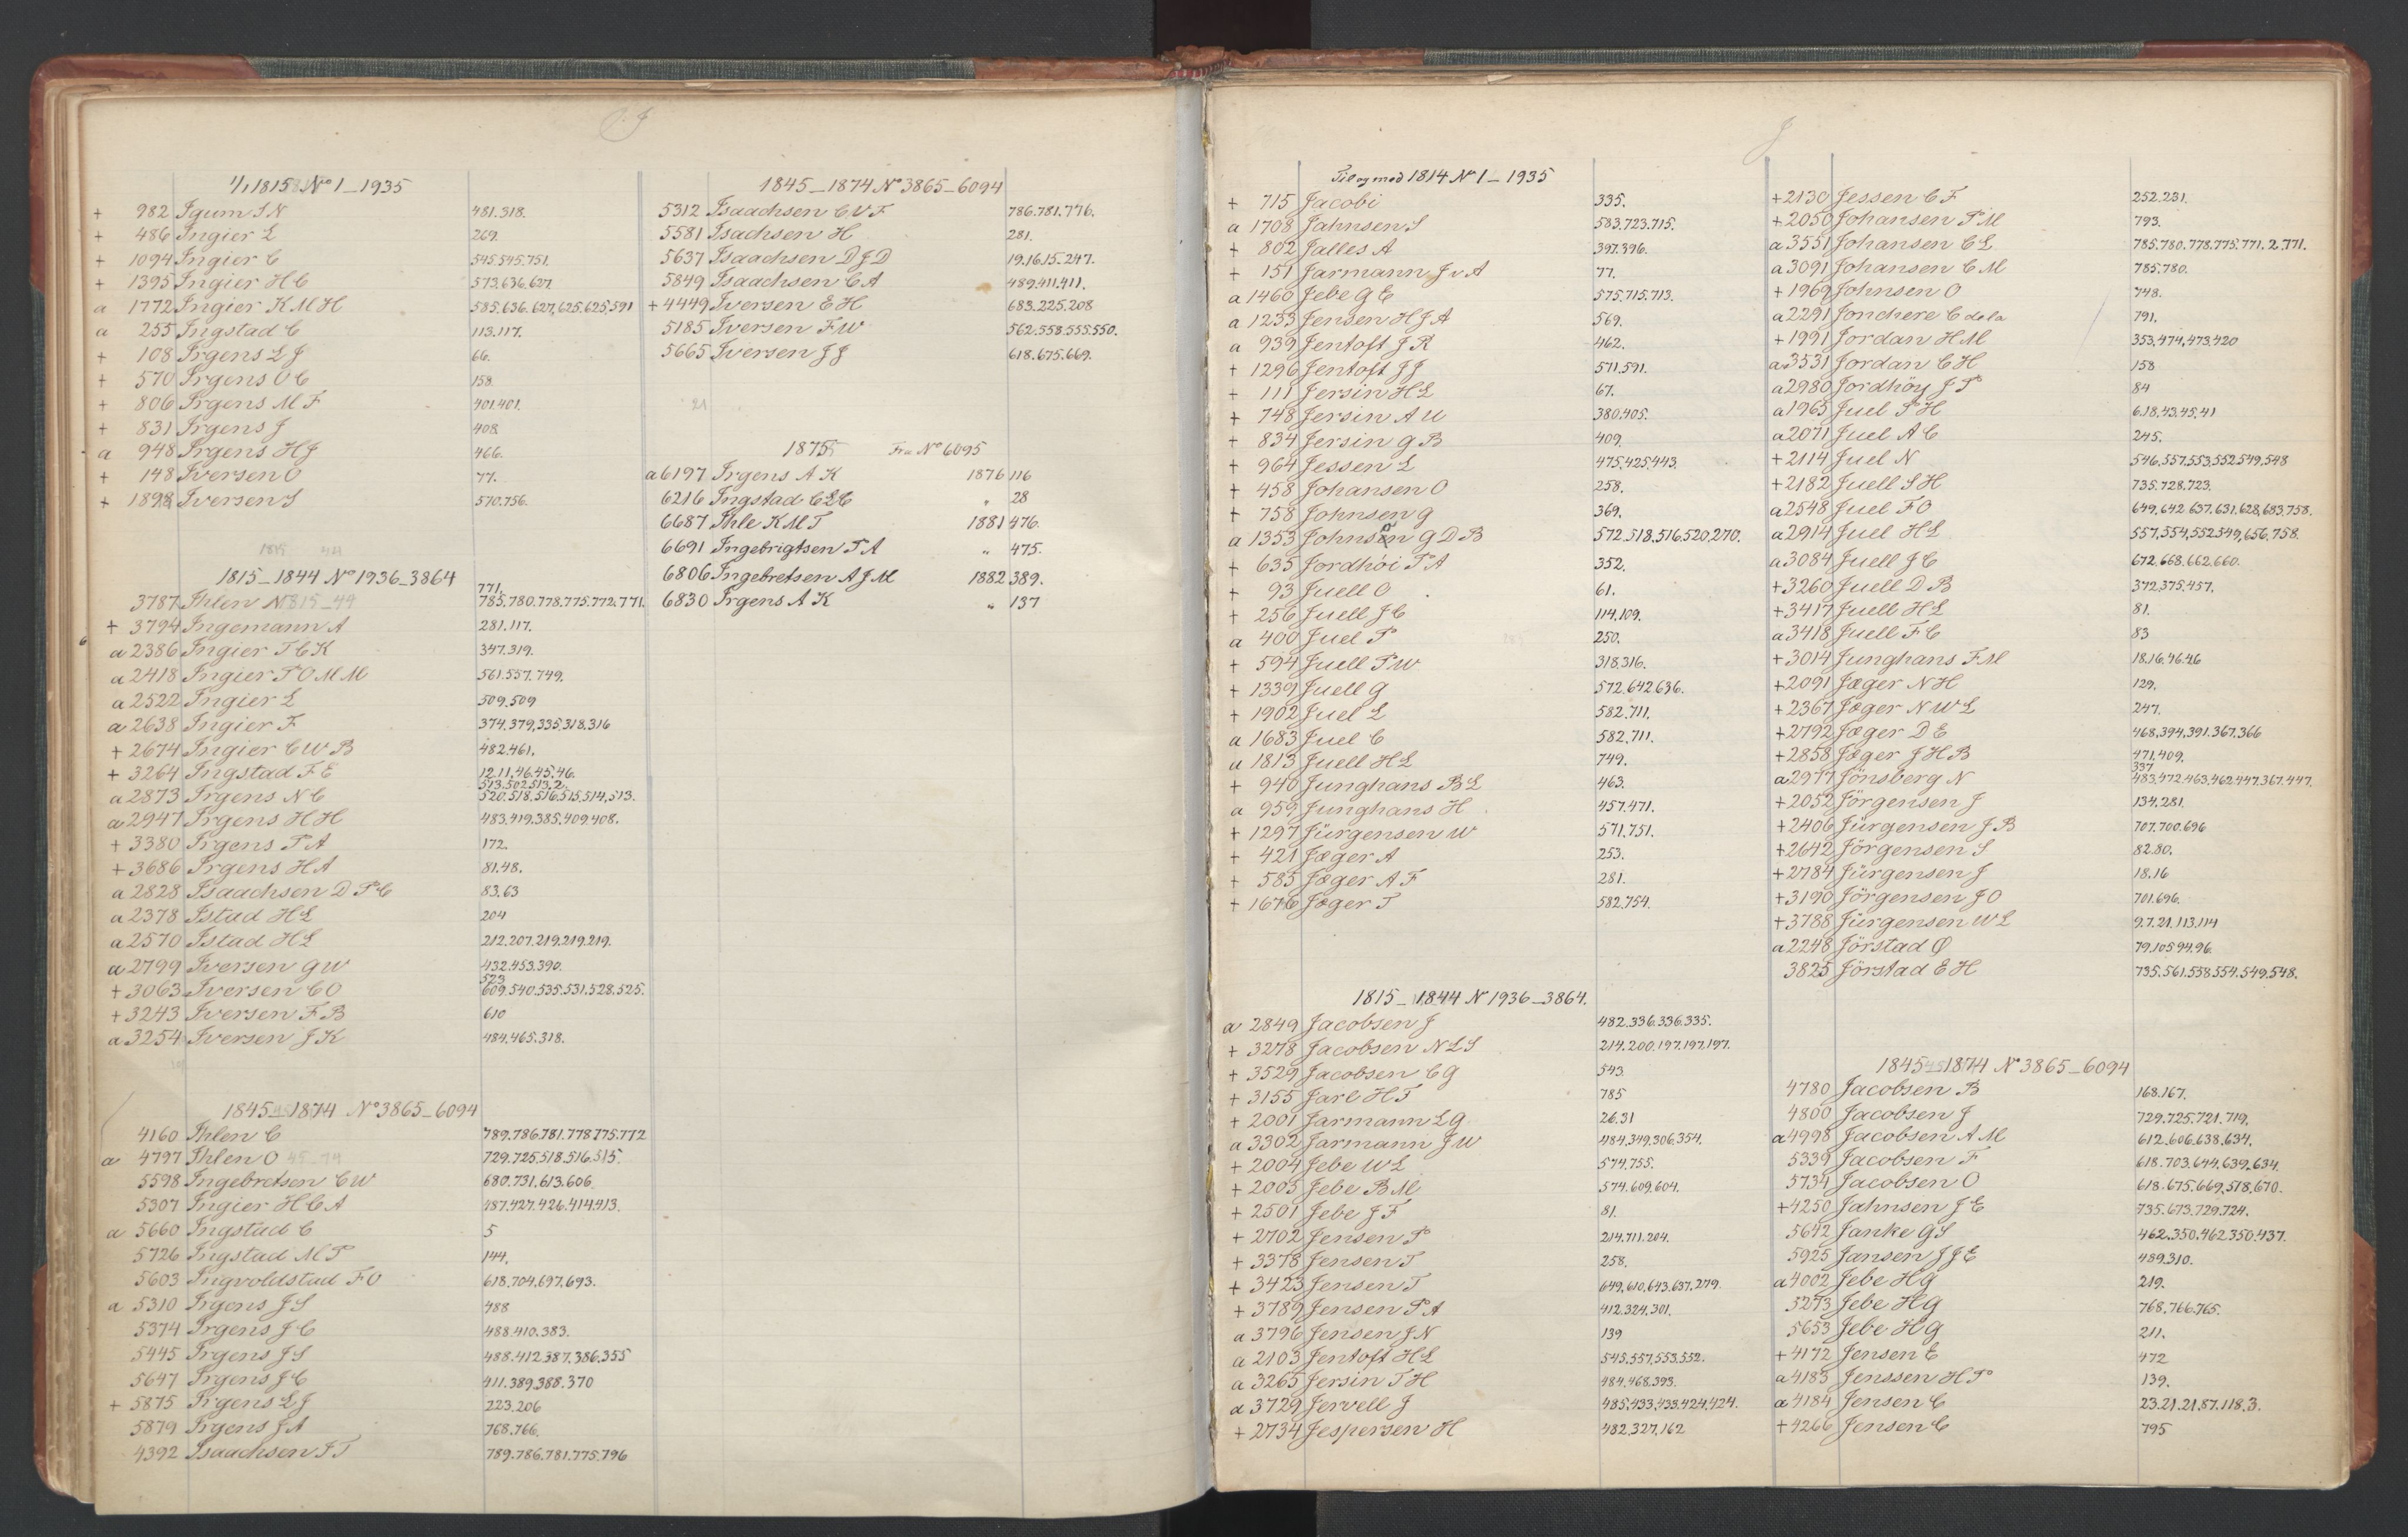 I. J
1/1 1815 No 1_1935
+ 982 Igum S N 481.318.
+ 486 Ingier L 269.
+ 1094 Ingier C 545.545.751.
+ 1395 Ingier H C 573.636.627.
a 1772 Ingier K M H 585.636.627,625.625,591
a 255 Ingstad C 113.117.
+ 108 Irgens L J 66.
+ 570 Irgens O C 158
+ 806 Irgens M F 401.401.
+ 831 Irgens J 408
a 948 Irgens H J 466.
+ 148 Iversen O 77.
+ 1898 Iversen S 570.756.
1815_1844 No 1936_3864
771.
3787 Ihlen N 785,780.778.775.772.771.
+ 3794 Ingemann A 281.117.
a 2386 Ingier T C K 347.319.
a 2418 Ingier P O M M 561.557.749.
a 2522 Ingier L 509.509
a 2638 Ingier F 374,379,335,318.316
+ 2674 Ingier C W B 482.461.
+ 3264 Ingstad F E 12.11.46.45.46.
513.502.513.2.
a 2873 Irgens N C 520.518.516.515.514,513.
a 2947 Irgens H H 483.419.385.409.408.
+ 3380 Irgens P A 172.
+ 3686 Irgens H A 81.48.
a 2828 Isaachsen D P C 83.63
a 2378 Istad H L 204
a 2570 Istad H L 212.207.219.219.219.
a 2799 Iversen G W 432.453.390.
523
+ 3063 Iversen C O 609.540.535.531.528.525.
+ 3243 Iversen F B 610
a 3254 Iversen J K 484.465.318.
1845_1874 No 3865_6094
4160 Ihlen C 789.786.781.778.775.772
a 4797 Ihlen O 729.725.518.516.515.
5598 Ingebretsen C W 680.731.613.606
5307 Ingier H C A 487.427.426.414.413.
a 5660 Ingstad C 5
5726 Ingstad M P 144.
5603 Ingvoldstad F O 618.704.697.693.
a 5310 Irgens J S 488
5374 Irgens J C 488.410.383.
5445 Irgens J S 488.412.387.386.355
5647 Irgens J C 411.389.388.370
+ 5875 Irgens L J 223.206
5879 Irgens J A 768.766.
4392 Isaachsen I T 789.786.781.775.796
1845_1874 No 3865_6094
5312 Isaachsen C V F 786.781.776.
5581 Isachsen H 281.
5637 Isaachsen D J D 19.16.15.247.
5849 Isaachsen C A 489.411.411.
+ 4449 Iversen E H 683.225.208
5185 Iversen F W 562.558.555.550.
5665 Iversen J J 618.675.669.
1875 Fra No 6095
a 6197 Irgens A K 1876 116
6216 Ingstad C L C " 28
6687 Ihle K M T 1881 476.
6691 Ingebrigtsen P A " 475.
6806 Ingebretsen A J M 1882 389.
6830 Irgens A K " 137
J
Til og med 1814 No 1_1935
+ 715 Jacobi 335.
a 1708 Jahnsen S 583.723.715.
+ 802 Jalles A 397.396.
+ 151 Jarmann J v A 77.
a 1460 Jebe G E 575.715.713.
a 1253 Jensen H J A 569.
a 939 Jentoft J R 462.
+ 1296 Jentoft J J 571.591.
+ 111 Jersin H L 67.
+ 748 Jersin A U 380.405.
+ 834 Jersin G B 409.
+ 964 Jessen L 475.425.443.
+ 458 Johansen O 258.
+ 758 Johnsen G 369.
a 1353 Johnson G D B 572.518.516.520.270.
+ 635 Jordhöi P A 352.
+ 93 Juell O 61.
+ 256 Juell J C 114.109.
a 400 Juel P 250.
+ 594 Juell P W 318.316.
+ 1339 Juell G 572.642.636.
+ 1902 Juel L 582.711.
a 1683 Juel C 582.711.
a 1813 Juell H L 749.
+ 940 Junghans B L 463.
a 959 Junghans H 457.471.
+ 1297 Jürgensen W 571.751.
+ 421 Jæger A 253.
+ 585 Jæger A F 281.
+ 1676 Jæger T 582.754.
1815_1844 No 1936_3864.
a 2849 Jacobsen J 482.336.336.335.
+ 3278 Jacobsen N L S 214.200.197.197.197.
+ 3529 Jacobsen C G 543
+ 3155 Jarl H T 785
+ 2001 Jarmann L G 26.31
a 3302 Jarmann J W 484.349.306.354.
+ 2004 Jebe W L 574.755.
+ 2005 Jebe B M 574.609.604.
+ 2501 Jebe J F 81.
+ 2702 Jensen P 214.711.204.
+ 3378 Jensen T 258.
+ 3423 Jensen T 649.610.643.637.279.
+ 3789 Jensen P A 412.324.301.
a 3796 Jensen J N 139
a 2103 Jentoft H L 545.557.553.552.
a 3265 Jersin T H 484.468.393.
a 3729 Jervell J 485.433.433.424.424.
+ 2734 Jespersen H 482.327.162
+ 2130 Jessen C F 252.231.
+ 2050 Johansen P M 793.
a 3551 Johansen C L 785.780.778.775.771.2.771.
a 3091 Johansen C M 785.780.
+ 1969 Johnsen O 748.
a 2291 Jonchere C de la 791.
+ 1991 Jordan H M 353.474.473.420
a 3531 Jordan C H 158
a 2980 Jordhöy J P 84
a 1965 Juel P H 6.18.43.45.41
a 2071 Juel A C 245.
+ 2114 Juel N 546.557.553.552.549.548
+ 2182 Juell S H 735.728.723.
a 2548 Juel F O 649.642.637.631.628.683.758.
a 2914 Juel H L 557.554.552.549.656.758.
a 3084 Juell J C 672.668.662.660.
+ 3260 Juell D B 372.375.457.
+ 3417 Juell H L 81.
a 3418 Juell F C 83
+ 3014 Junghans F M 18.16.46.46
+ 2091 Jæger N H 129.
+ 2367 Jæger N W L 247.
+ 2792 Jæger D E 468.394.391.367.366
+ 2858 Jæger J H B 471.409.
337
a 2977 Jönsberg N 483.472.463.462.447.367.447.
+ 2052 Jörgensen J 134.281.
+ 2406 Jürgensen J B 707.700.696
+ 2642 Jörgensen S 82.80.
+ 2784 Jürgensen J 18.16
+ 3190 Jörgensen J O 701.696.
+ 3788 Jürgensen W L 9.7.21.113.114
a 2248 Jörstad Ø 79.105.94.96
3825 Jörstad E H 735.561.558.554.549.548.
1845_1874 No 3865_6094
4780 Jacobsen B 168.167.
4800 Jacobsen J 729.725.721.719.
a 4998 Jacobsen A M 612.606.638.634.
5339 Jacobsen F 618.703.644.639.634.
5734 Jacobsen O 618.675.669.518.670.
+ 4250 Jahnsen J E 735.673.729.724.
5642 Janke G S 462.350.462.350.437.
5925 Jansen J J E 489.310.
a 4002 Jebe H G 219.
5273 Jebe H G 768.766.765.
5653 Jebe H G 211.
+ 4172 Jensen E 472
a 4183 Jenssen H P 139.
a 4184 Jensen C 23.21.21.87.118.3.
+ 4266 Jensen C 795